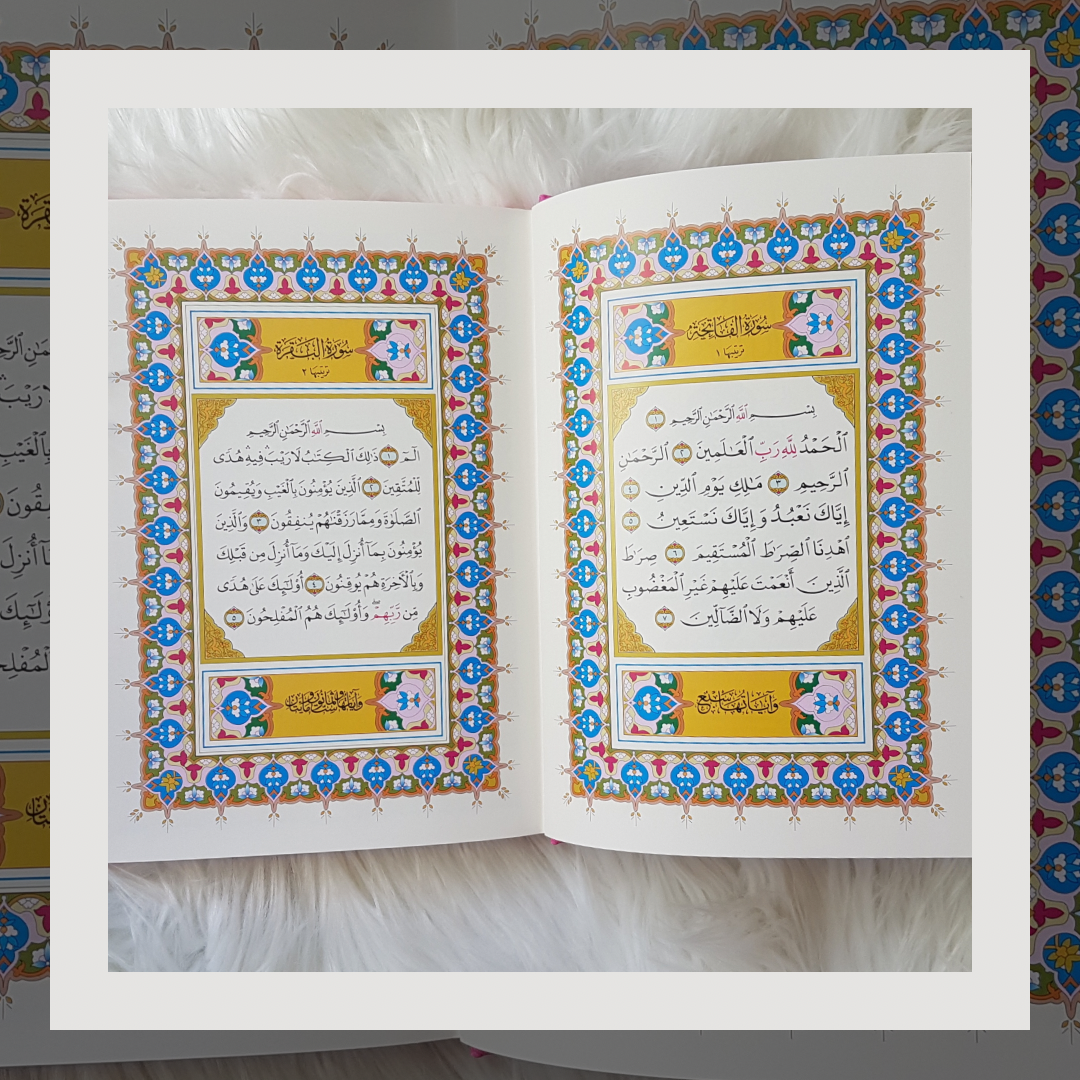 سُورَةُ الفَاتِحَةِ
ترتيبها ١
بِسْمِ ٱللَّهِ ٱلرَّحْمَٰنِ ٱلرَّحِيمِ ١
ٱلْحَمْدُ لِلَّهِ رَبِّ ٱلْعَٰلَمِينَ ٢ ٱلرَّحْمَٰنِ
ٱلرَّحِيمِ ٣ مَٰلِكِ يَوْمِ ٱلدِّينِ ٤
إِيَّاكَ نَعْبُدُ وَإِيَّاكَ نَسْتَعِينُ ٥
ٱهْدِنَا ٱلصِّرَٰطَ ٱلْمُسْتَقِيمَ ٦ صِرَٰطَ
ٱلَّذِينَ أَنْعَمْتَ عَلَيْهِمْ غَيْرِ ٱلْمَغْضُوبِ
عَلَيْهِمْ وَلَا ٱلضَّآلِّينَ ٧
وَآيَاتُهَا سَبْعٌ
سُورَةُ البَقَرَةِ
ترتيبها ٢
بِسْمِ ٱللَّهِ ٱلرَّحْمَٰنِ ٱلرَّحِيمِ
الٓمٓ ١ ذَٰلِكَ ٱلْكِتَٰبُ لَا رَيْبَ فِيهِ هُدًى
لِّلْمُتَّقِينَ ٢ ٱلَّذِينَ يُؤْمِنُونَ بِٱلْغَيْبِ وَيُقِيمُونَ
ٱلصَّلَوٰةَ وَمِمَّا رَزَقْنَٰهُمْ يُنفِقُونَ ٣ وَٱلَّذِينَ
يُؤْمِنُونَ بِمَآ أُنزِلَ إِلَيْكَ وَمَآ أُنزِلَ مِن قَبْلِكَ
وَبِٱلْءَاخِرَةِ هُمْ يُوقِنُونَ ٤ أُو۟لَٰٓئِكَ عَلَىٰ هُدًى
مِّن رَّبِّهِمْ ۖ وَأُو۟لَٰٓئِكَ هُمُ ٱلْمُفْلِحُونَ ٥
وَآيَاتُهَا سِتٌّ وَثَمَانُونَ وَمِائَتَانِ